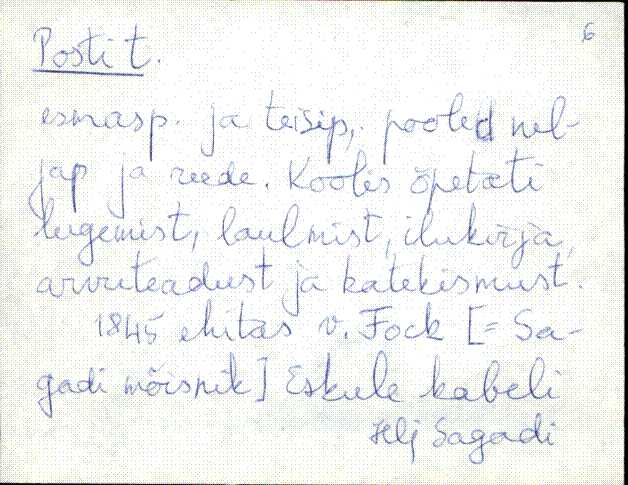 6
Posti t.
esmasp. ja teisip., pooled nel-
jap ja reede. Koolis õpetati
lugemist, laulmist, ilukirja,
arvuteadust ja katekismust.
1845 ehitas v. Fock [= Sa-
gadi mõisnik] Eskule kabeli
Hlj Sagadi